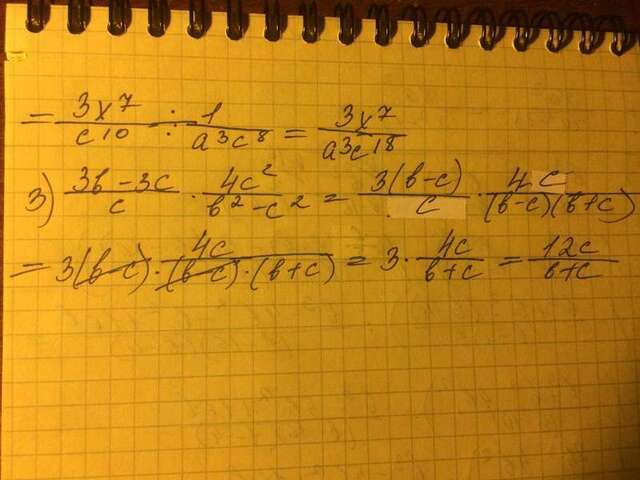 = 3x⁷/c¹⁰ ÷ 1/a³c⁸ = 3x⁷/a³c¹⁸
3) 3в-3c/c · 4c²/в²-c² = 3(в-c)/c · 4c/(в-c)(в+c)
= 3(в-c) · 4c/(в-c)·(в+c) = 3 · 4c/в+c = 12c/в+c